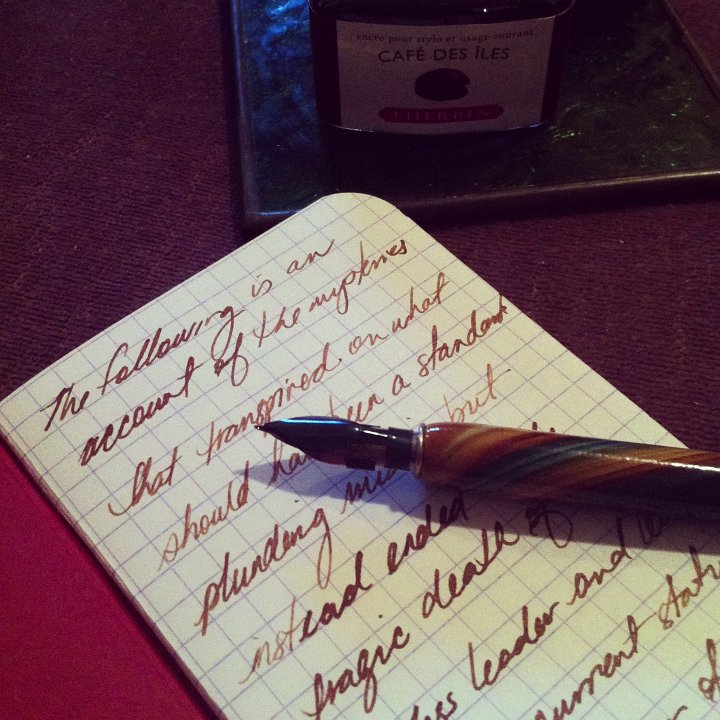 encre pour stylo et usage courant
CAFÉ DES ÎLES
J. HERBIN
The following is an
account of the mysteries
that transpired on what
should a standard
plunding but
instead ended
tragic death of
leader and